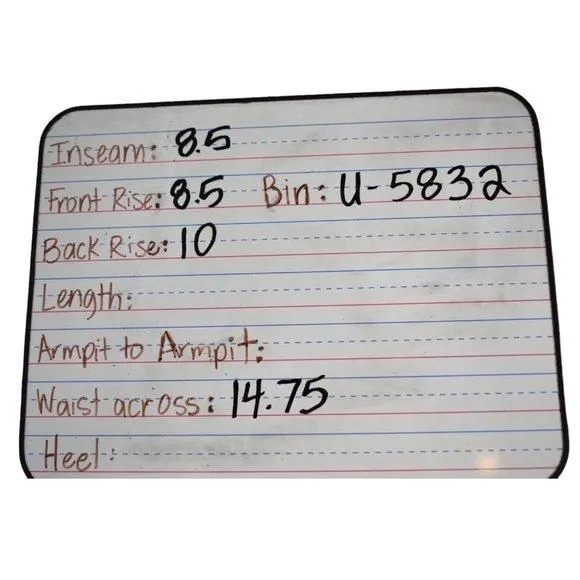 Inseam: 8.5
Front Rise: 8.5 Bin: U-5832
Back Rise: 10
Length:
Armpit to Armpit:
Waist across: 14.75
Heel: